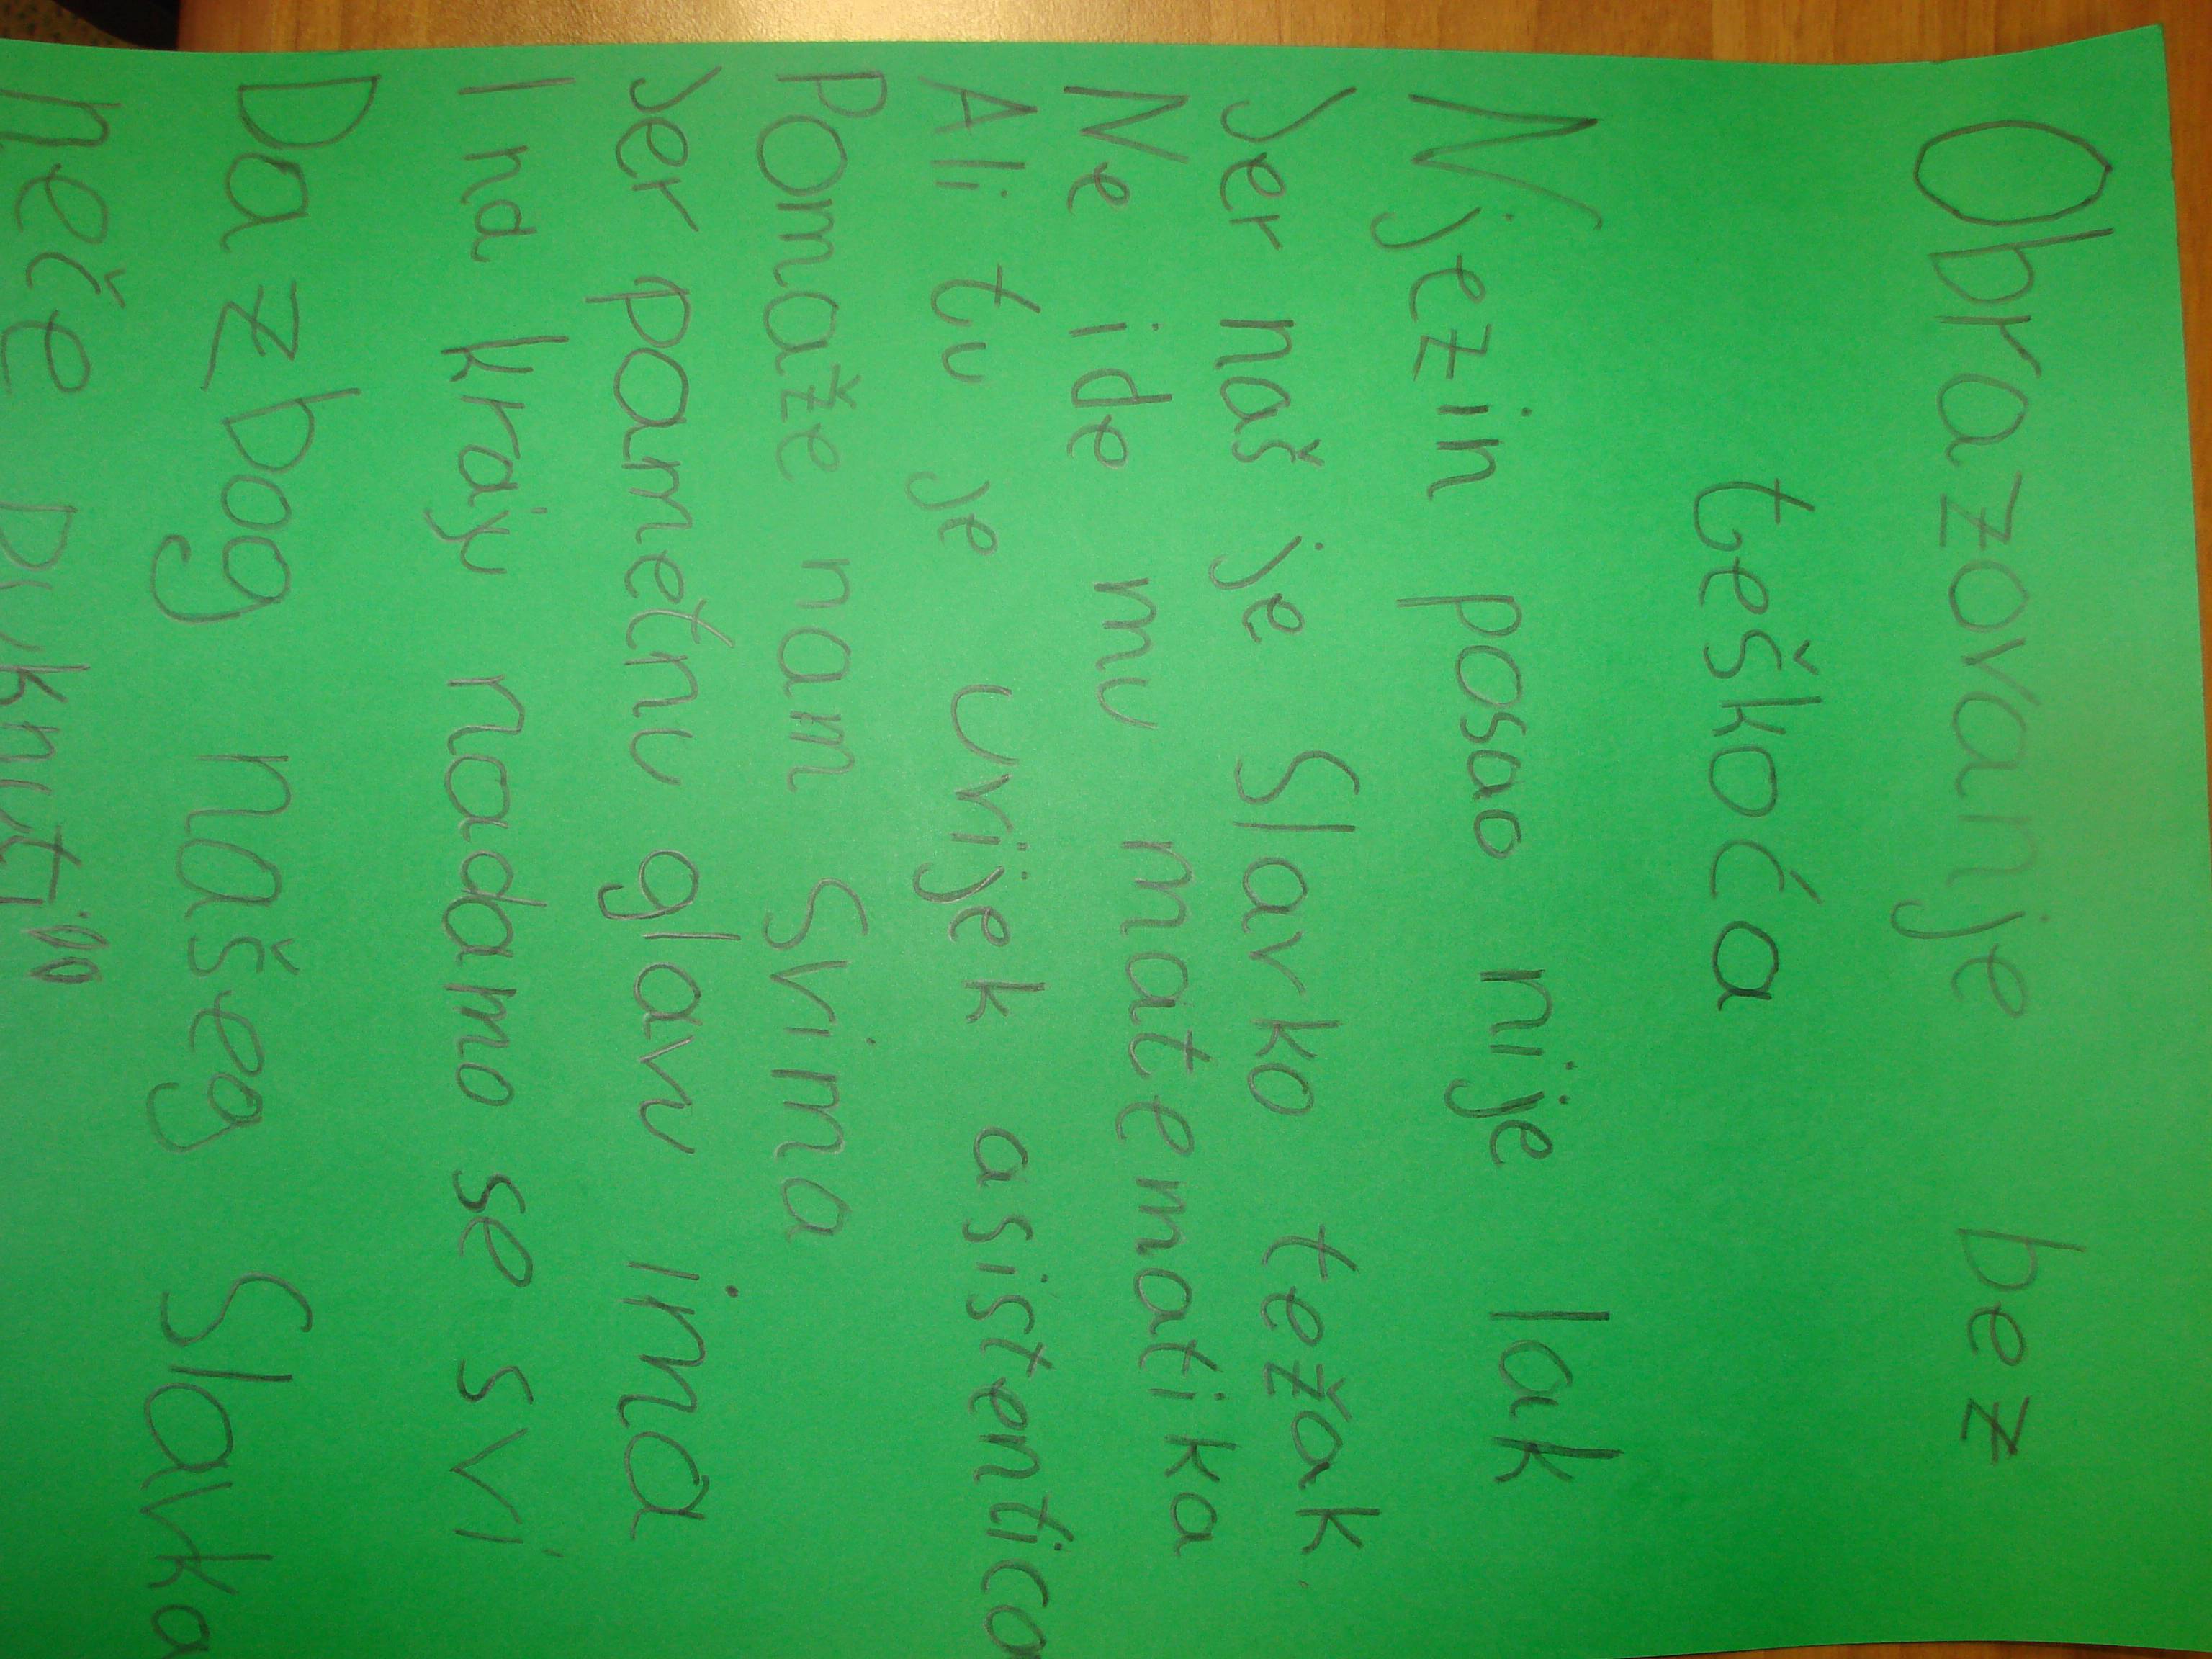 Obrazovanje bez
teškoća
Njezin posao nije lak
Jer naš je Slavko težak.
Ne ide mu matematika
Ali tu je uvijek asistentica
Pomaže nam svima
Jer pametnu glavu ima
I na kraju nadamo se svi
Da zbog našeg Slavka
neče puknuti